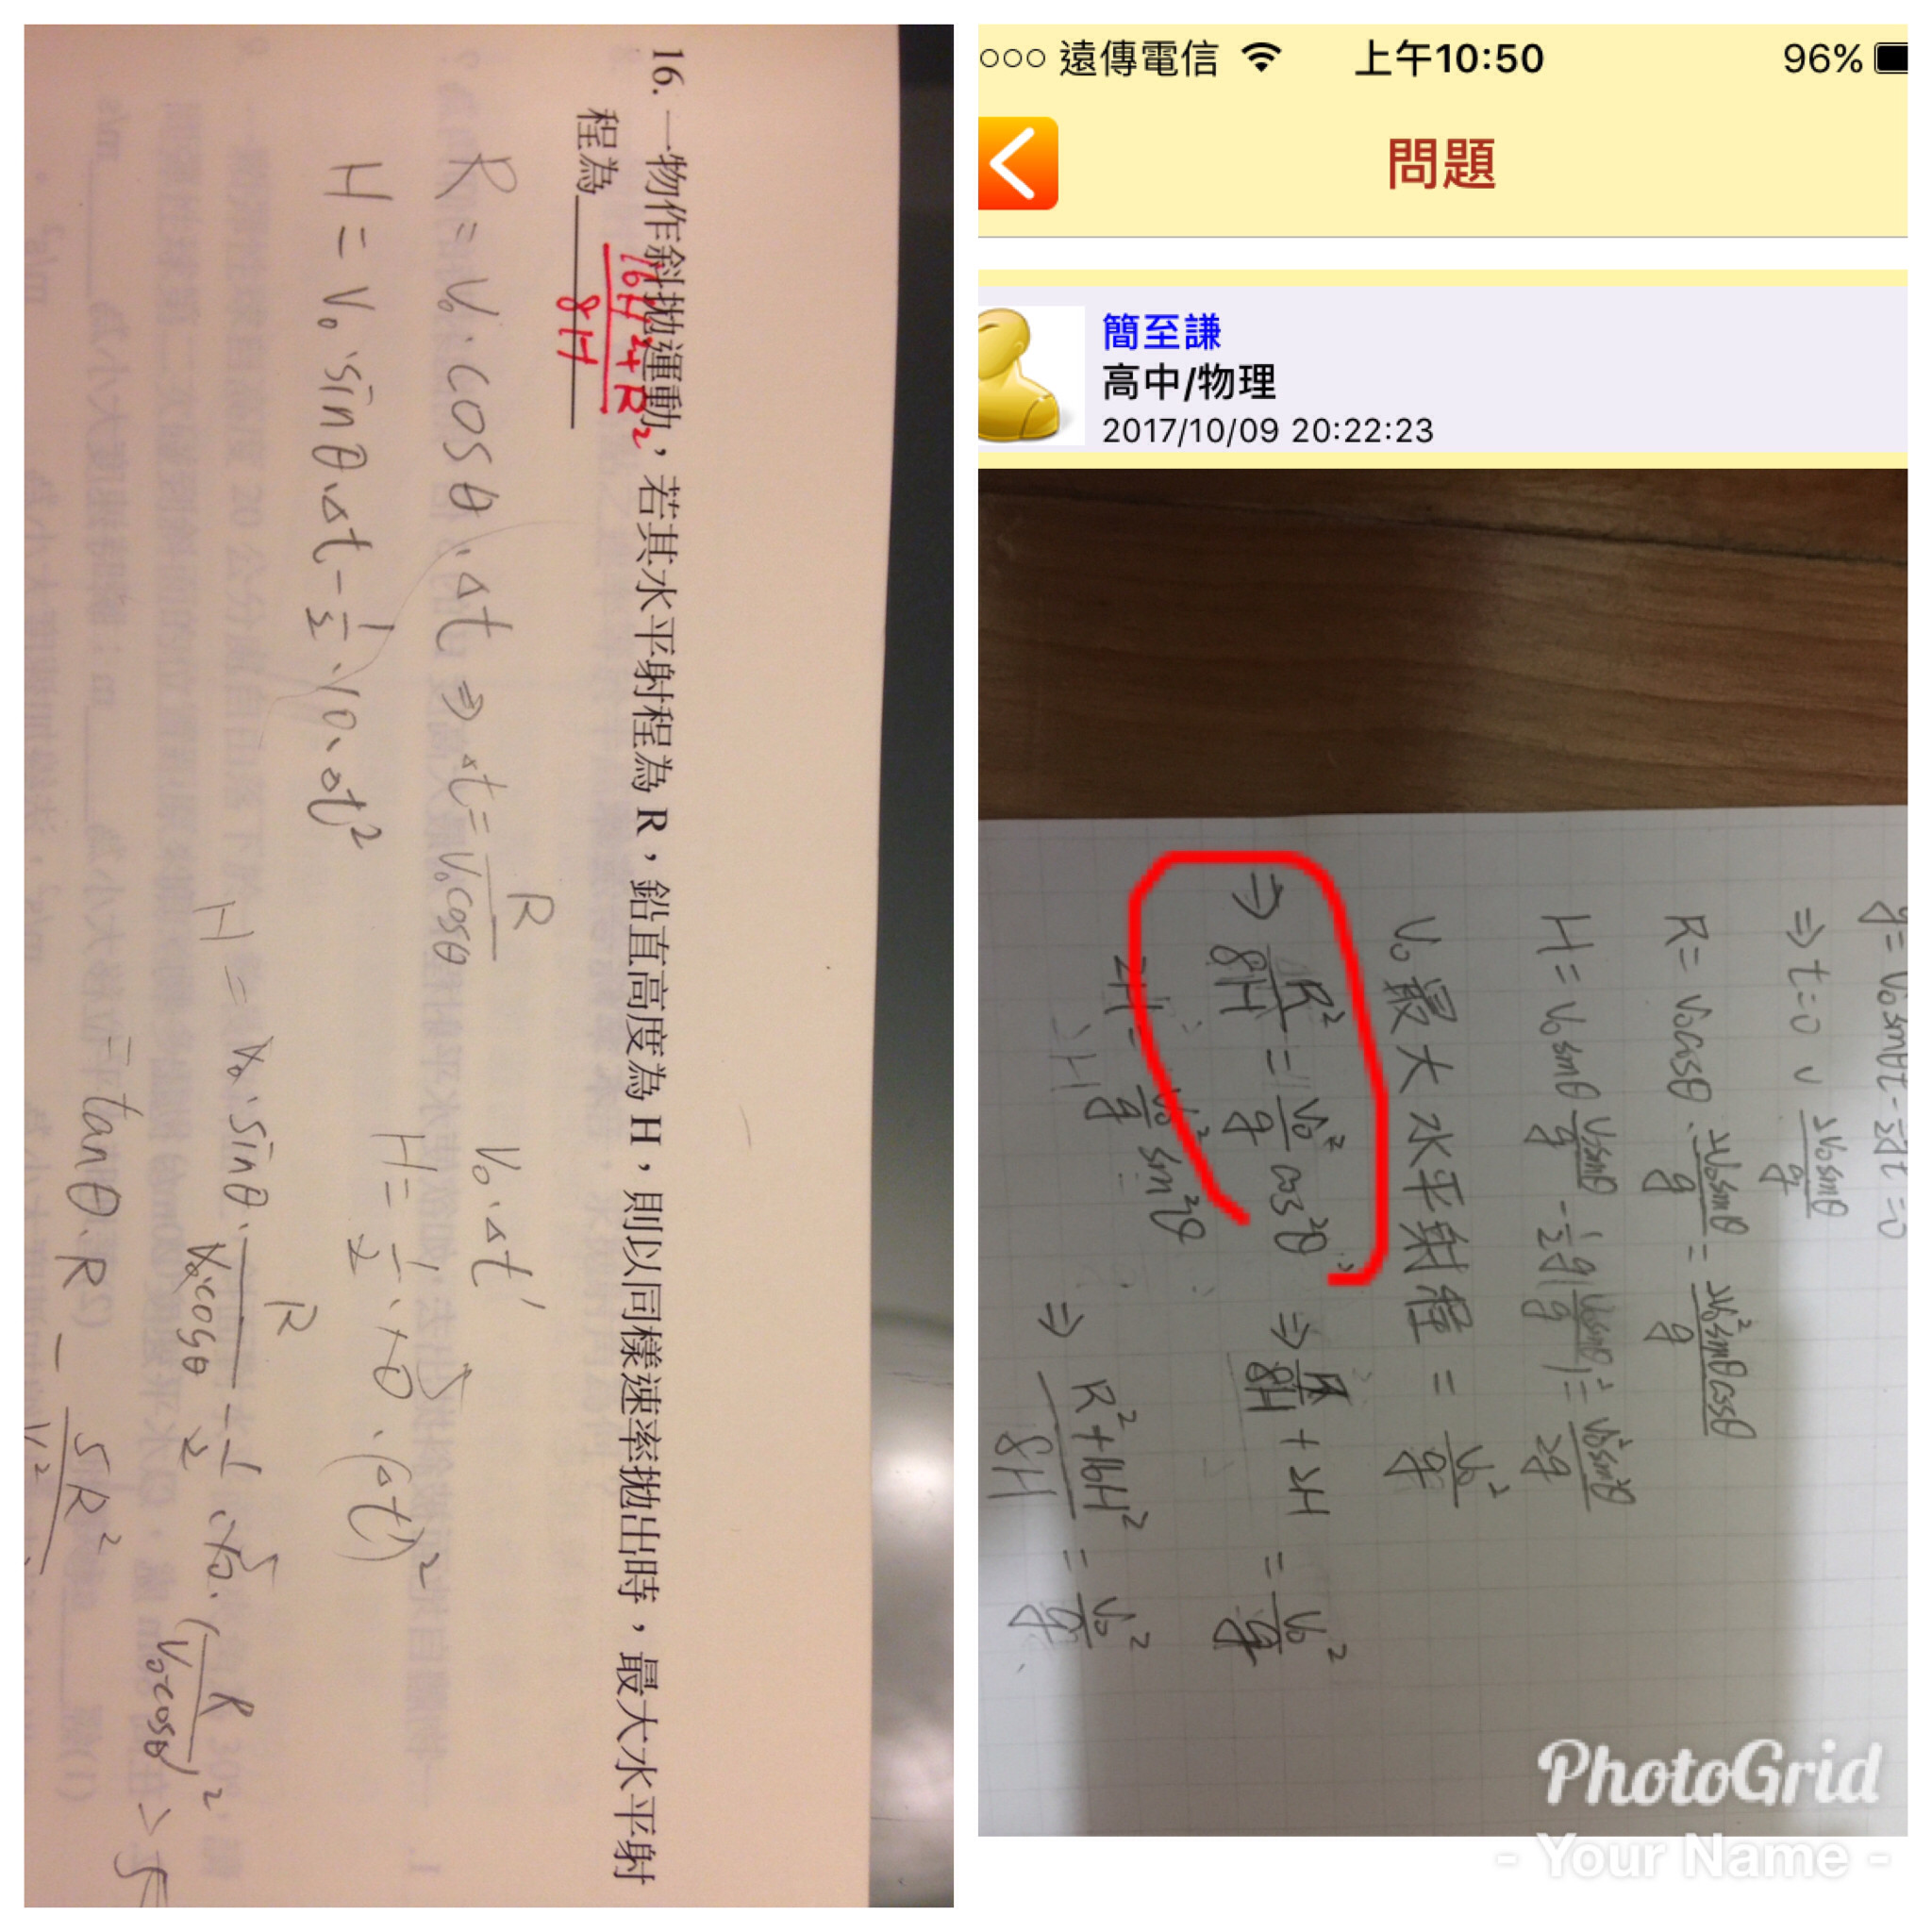 16. 一物作斜拋運動，若其水平射程為 R，鉛直高度為 H，則以同樣速率拋出時，最大水平射
程為
16H²+R²
8H
R = V₀·cosθ·Δt ⇒ Δt = R/V₀cosθ
H = V₀·sinθ·Δt - 1/2·10·Δt²
V₀·Δt'
H = 1/2·10·(Δt')²
H = V₀·sinθ·R/V₀cosθ - 1/2·10·(R/V₀cosθ)²
tanθ·R - 5R²
遠傳電信 上午10:50 96%
問題
簡至謙
高中/物理
2017/10/09 20:22:23
⇒ t=0 ∨ 2V₀sinθ/g
R = V₀cosθ·2V₀sinθ/g = 2V₀²sinθcosθ/g
H = V₀sinθ V₀sinθ/g - 1/2 g(V₀sinθ/g)² = V₀²sin²θ/2g
V₀最大水平射程 = V₀²/g
⇒ R²/8H = V₀²/g cos²θ ⇒ R²/8H + 2H = V₀²/g
2H = V₀²/g sin²θ
⇒ R²+16H²/8H = V₀²/g
PhotoGrid
- Your Name -